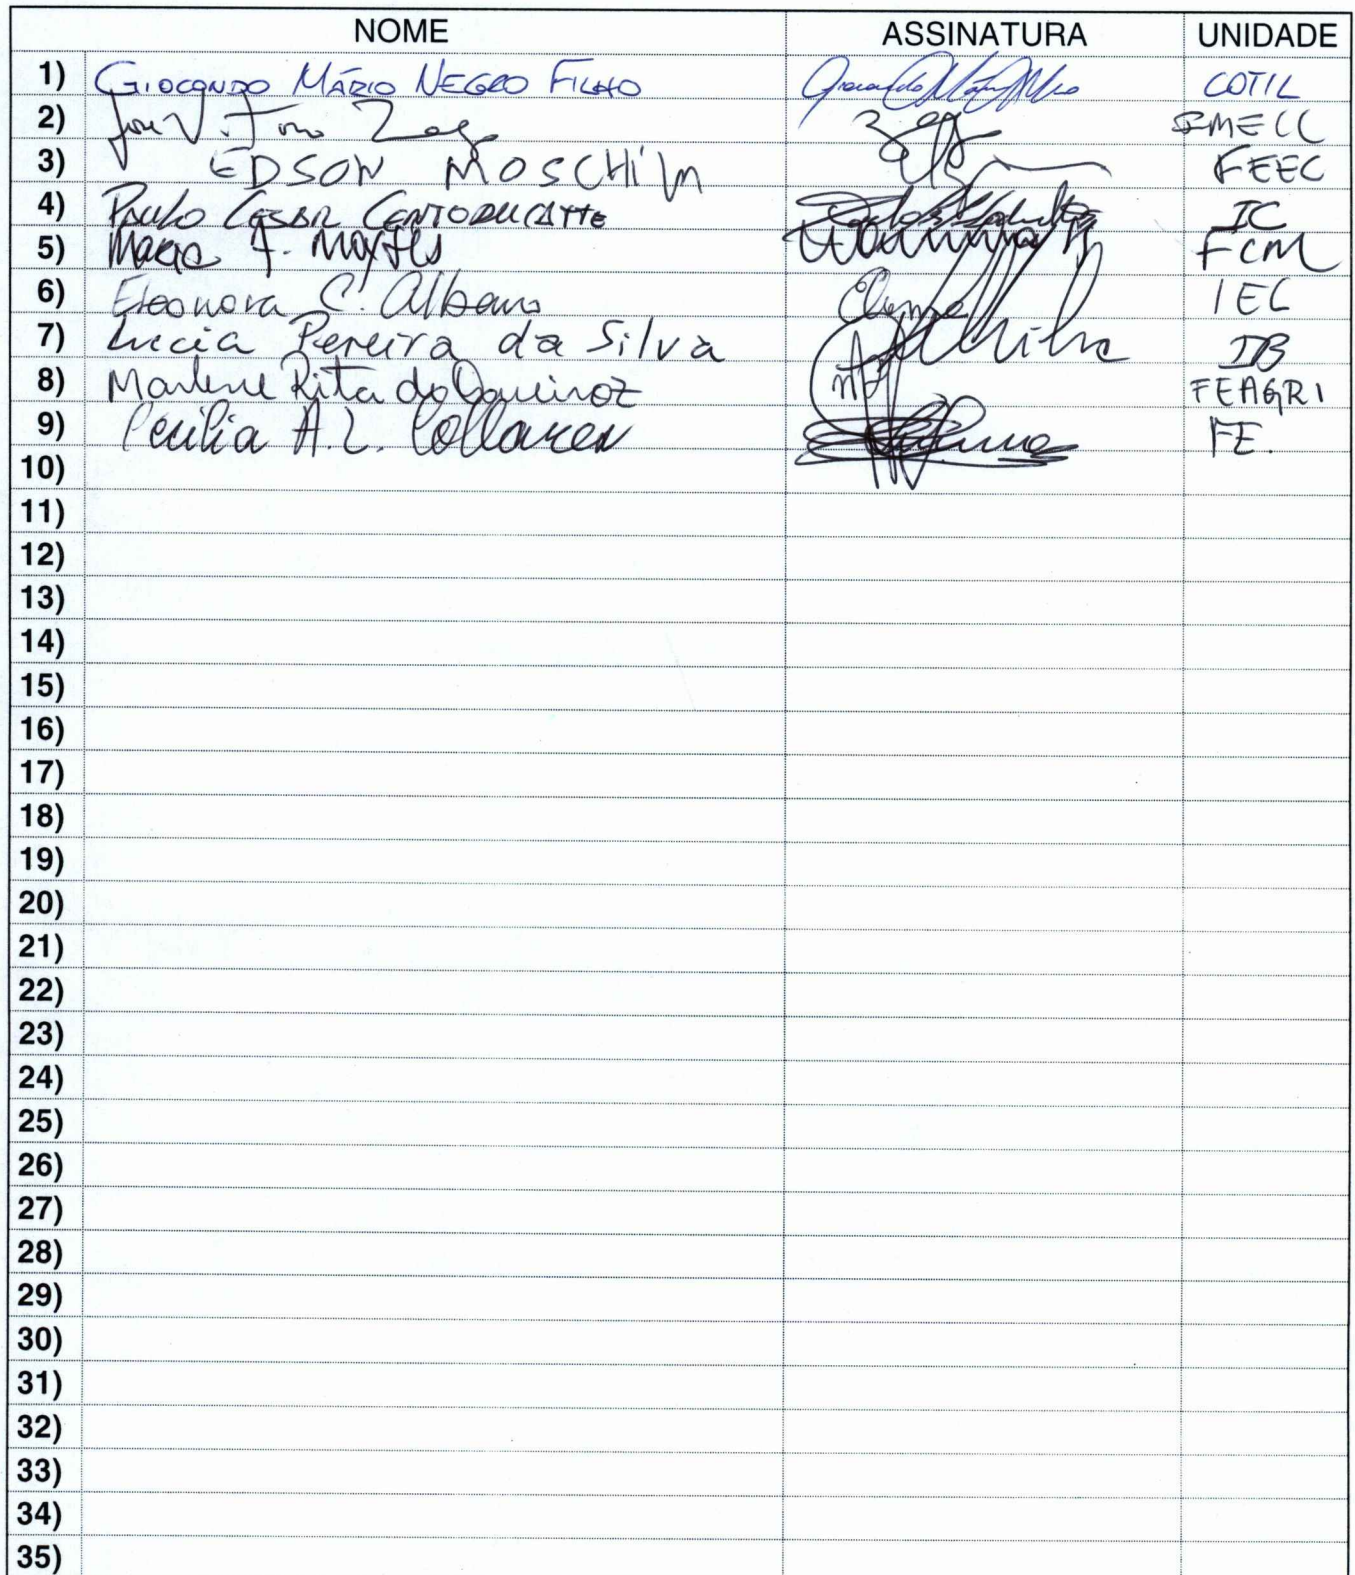 NOME ASSINATURA UNIDADE
1) GIOCONDO MÁRIO NEGRO FILHO COTIL
2) Zago IMECC
3) EDSON MOSCHIM FEEC
4) PAULO CESAR CENTODUCATTE IC
5) Maria A. FCM
6) Eleonora C. Albano IEL
7) Lucia Pereira da Silva IB
8) Marlene Rita de Queiroz FEAGRI
9) Cecilia A. L. Collares FE.
10)
11)
12)
13)
14)
15)
16)
17)
18)
19)
20)
21)
22)
23)
24)
25)
26)
27)
28)
29)
30)
31)
32)
33)
34)
35)